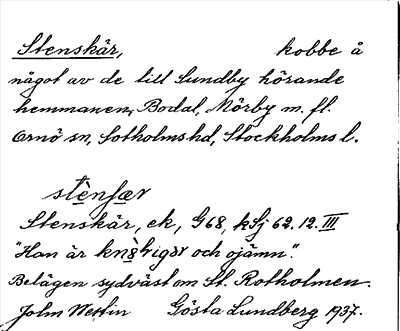 Stenskär, kobbe å
något av de till Sundby hörande
hemmanen, Bodal, Mörby m. fl.
Ornö sn, Sotholms hd, Stockholms l.
stènſær
Stenskär, ek, G68, kSj 62.12.III
"Han är knȍ̀trigər och ojämn".
Belägen sydväst om St. Rotholmen.
John Westin Gösta Lundberg 1937.